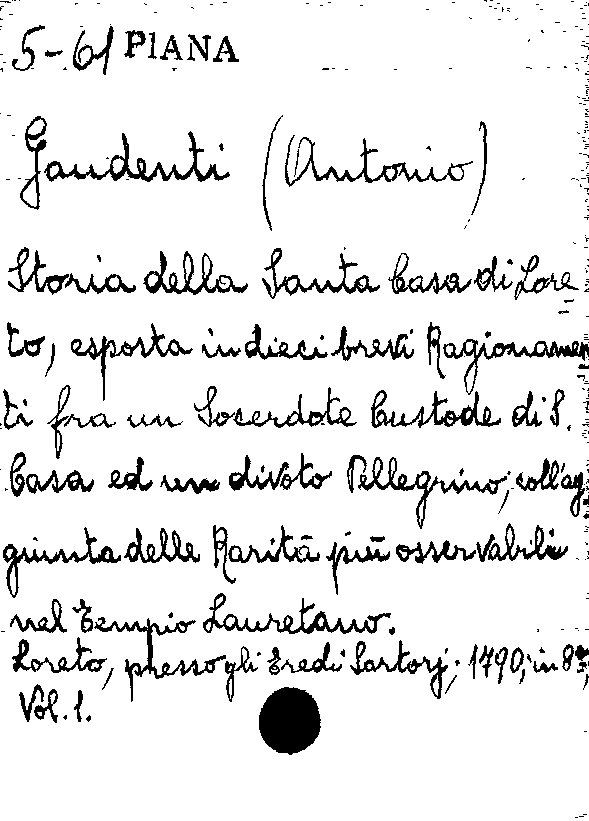 5-61 PIANA
Gaudenti (Antonio)
Storia della Santa Casa di Lore
to, esposta in dieci brevi Ragionamen
ti fra un Socerdote Custode di S.
Casa ed un divoto Pellegrino, coll'ag
giunta delle Rarità più osservabili
nel Tempio Lauretano.
Loreto, presso gli Eredi Sartorj, 1790, in 8º,
Vol. 1.